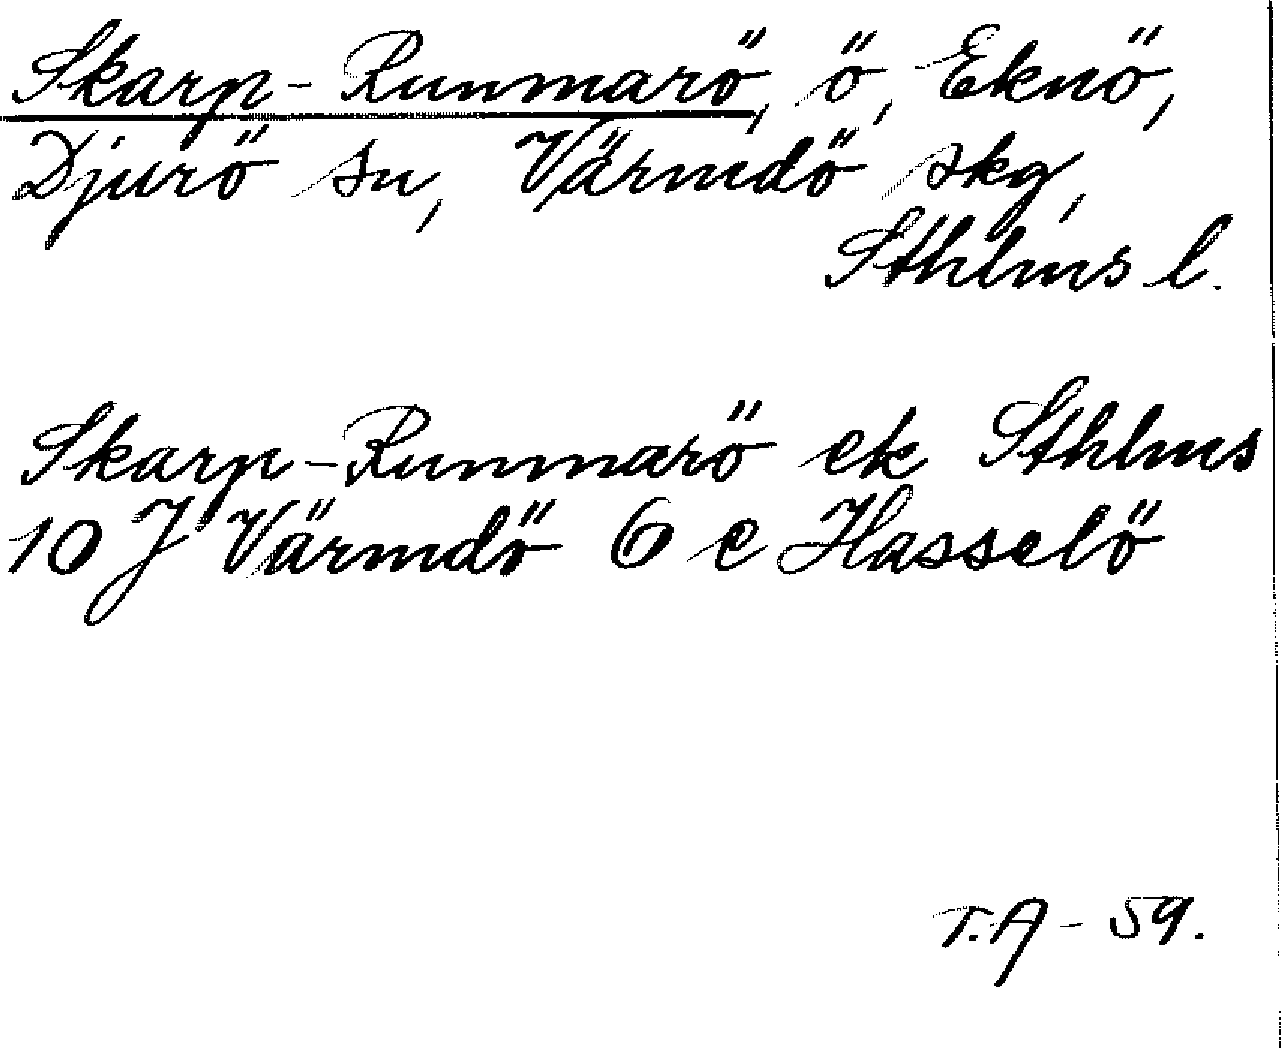 Skarp-Runmarö, ö, Eknö,
Djurö sn, Värmdö skg,
Sthlms l.
Skarp-Runmarö ek Sthlms
10 J Värmdö 6 c Hasselö
T.A - 59.